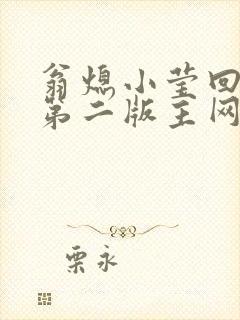 翁熄小莹回
第二版主网
栗永